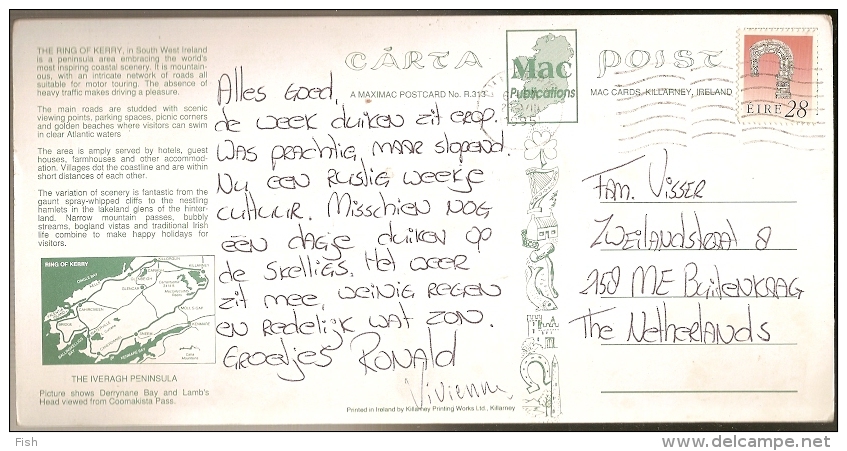 THE RING OF KERRY, in South West Ireland
is a peninsula area embracing the world's
most inspiring coastal scenery. It is mountain-
ous, with an intricate network of roads all
suitable for motor touring. The absence of
heavy traffic makes driving a pleasure.
The main roads are studded with scenic
viewing points, parking spaces, picnic corners
and golden beaches where visitors can swim
in clear Atlantic waters
The area is amply served by hotels, guest
houses, farmhouses and other accommod-
ation. Villages dot the coastline and are within
short distances of each other.
The variation of scenery is fantastic from the
gaunt spray-whipped cliffs to the nestling
hamlets in the lakeland glens of the hinter-
land. Narrow mountain passes, bubbly
streams, bogland vistas and traditional Irish
life combine to make happy holidays for
visitors.
RING OF KERRY
THE IVERAGH PENINSULA
Picture shows Derrynane Bay and Lamb's
Head viewed from Coomakista Pass.
CÁRTA POIST
A MAXIMAC POSTCARD No. R.313
Mac
Publications
MAC CARDS, KILLARNEY, IRELAND
ÉIRE 28
Alles Goed,
de week duiken zit erop.
Was prachtig, maar slopend.
Nu een rustig weekje
cultuur. Misschien nog
één dagje duiken op
de Skelligs. Het weer
zit mee, weinig regen
en redelijk wat zon.
Groetjes Ronald
Vivienne
Fam. Visser
8
ME
The Netherlands
Printed in Ireland by Killarney Printing Works Ltd., Killarney
Fish
www.delcampe.net